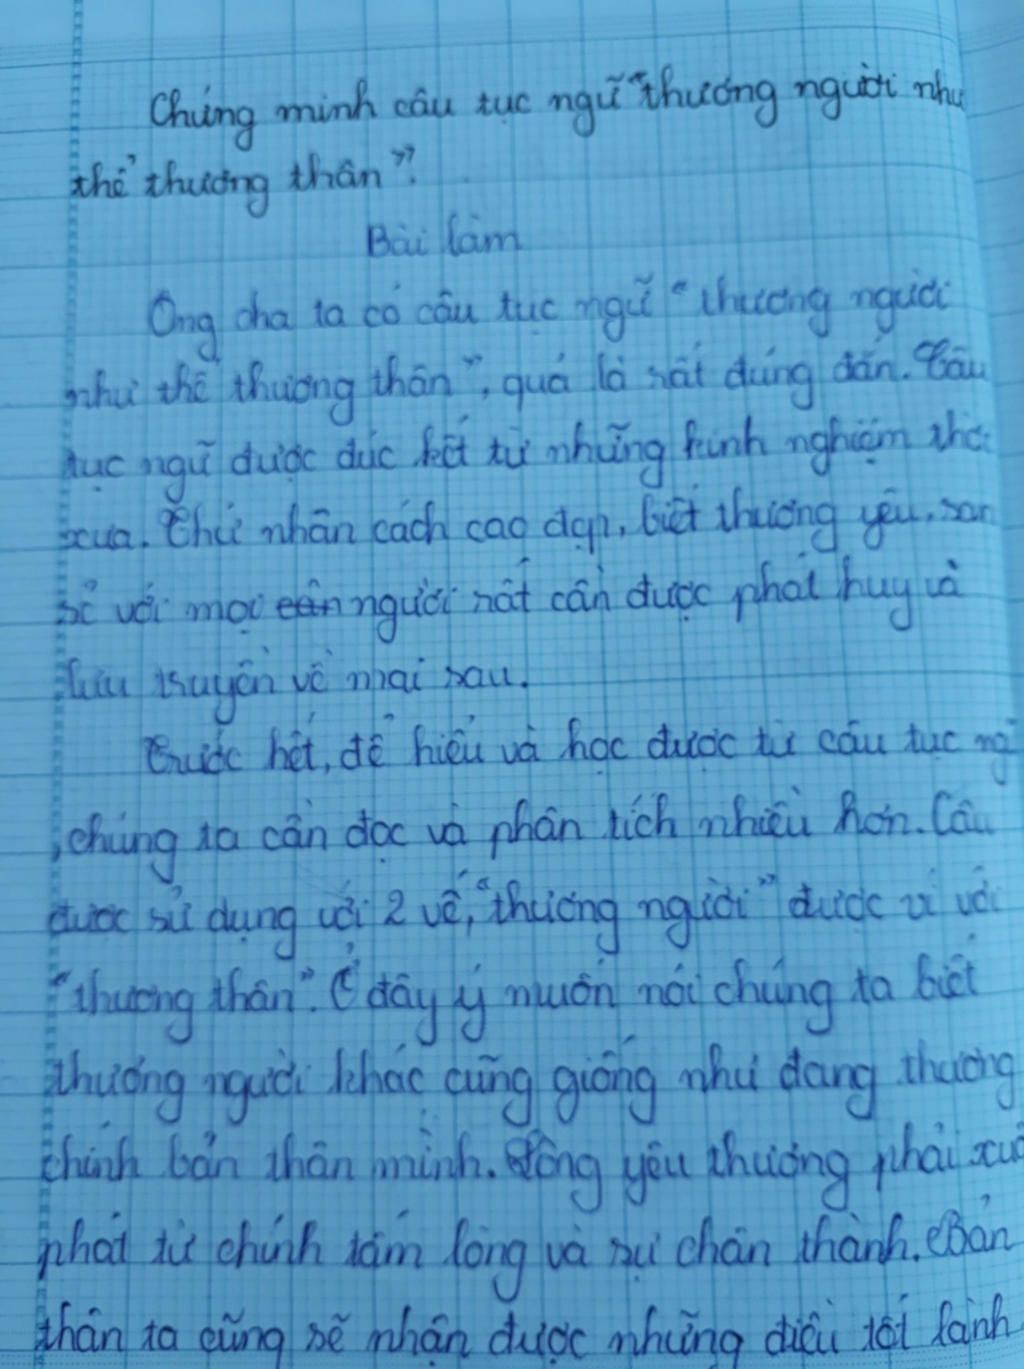 Chứng minh câu tục ngữ "thương người như
thể thương thân".
Bài làm
Ông cha ta có câu tục ngữ "thương người
như thể thương thân", quả là rất đúng đắn. Câu
tục ngữ được đúc kết từ những kinh nghiệm
xưa. Thứ nhân cách cao đẹp, biết thương yêu, san
sẻ với mọi người rất cần được phát huy và
lưu truyền về mai sau.
Trước hết, để hiểu và học được từ câu tục
chúng ta cần đọc và phân tích nhiều hơn. Câu
được sử dụng với 2 vế, "thương người" được ví với
"thương thân". Ở đây ý muốn nói chúng ta biết
thương người khác cũng giống như đang thương
chính bản thân mình. Lòng yêu thương phải
phát từ chính tấm lòng và sự chân thành. Bản
thân ta cũng sẽ nhận được những điều tốt lành